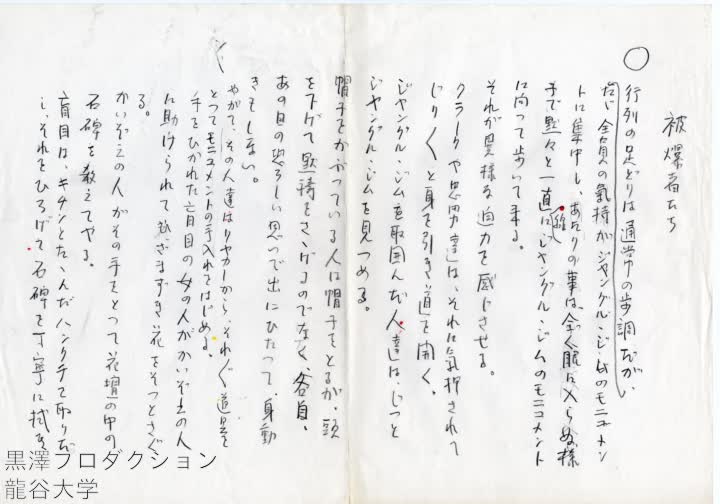 ○
被爆者たち
行列の足どりは通常の歩調だが、
たゞ全員の氣持がジャングル・ジムのモニュメン
トに集中し、あたりの事は全く眼に入らぬ様
手で黙々と一直線にジャングル・ジムのモニュメント
に向って歩いて来る。
それが異様な迫力を感じさせる。
クラークや忠男達は、それに氣押されて
じり〱と身を引き道を開く。
ジャングル・ジムを取囲んだ人達は、じっと
ジャングル・ジムを見つめる。
帽子をかぶっている人は帽子をとるが、頭
を下げて黙祷をさゝげるのでなく、各自、
あの日の恐ろしい思い出にひたって、身動
きもしない。
やがて、その人達はリヤカーから、それ〲道具を
とってモニュメントの手入れをはじめる。
手をひかれた盲目の女の人がかいぞえの人
に助けられてひざまずき花をそっとさぐ
る。
かいぞえの人がその手をとって花壇の中の
石碑を教えてやる。
盲目は、キチンとたゝんだハンケチを取りだ
し、それをひろげて石碑を丁寧に拭き、
黒澤プロダクション
龍谷大学